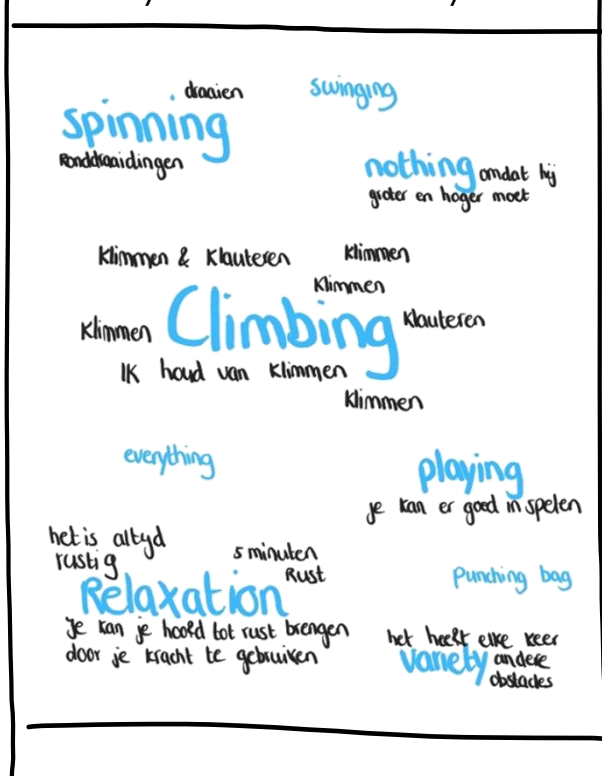 draaien
swinging
spinning
Ronddraaidingen
nothing omdat hij
groter en hoger moet
Klimmen & Klauteren
Klimmen
Klimmen
Klimmen
Climbing
Klauteren
IK houd van Klimmen
Klimmen
everything
playing
je kan er goed in spelen
het is altyd
rustig
5 minuten
Rust
Relaxation
Je kan je hoofd tot rust brengen
door je kracht te gebruiken
Punching bag
het heeft elke keer
variety andere
obstacles